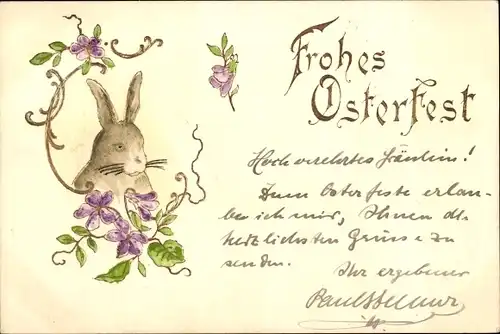 Frohes
Osterfest
Hochverehrtes Fräulein!
Zum Osterfeste erlau-
be ich mir, Ihnen die
herzlichsten Grüsse zu
senden.
Ihr ergebener
Paul